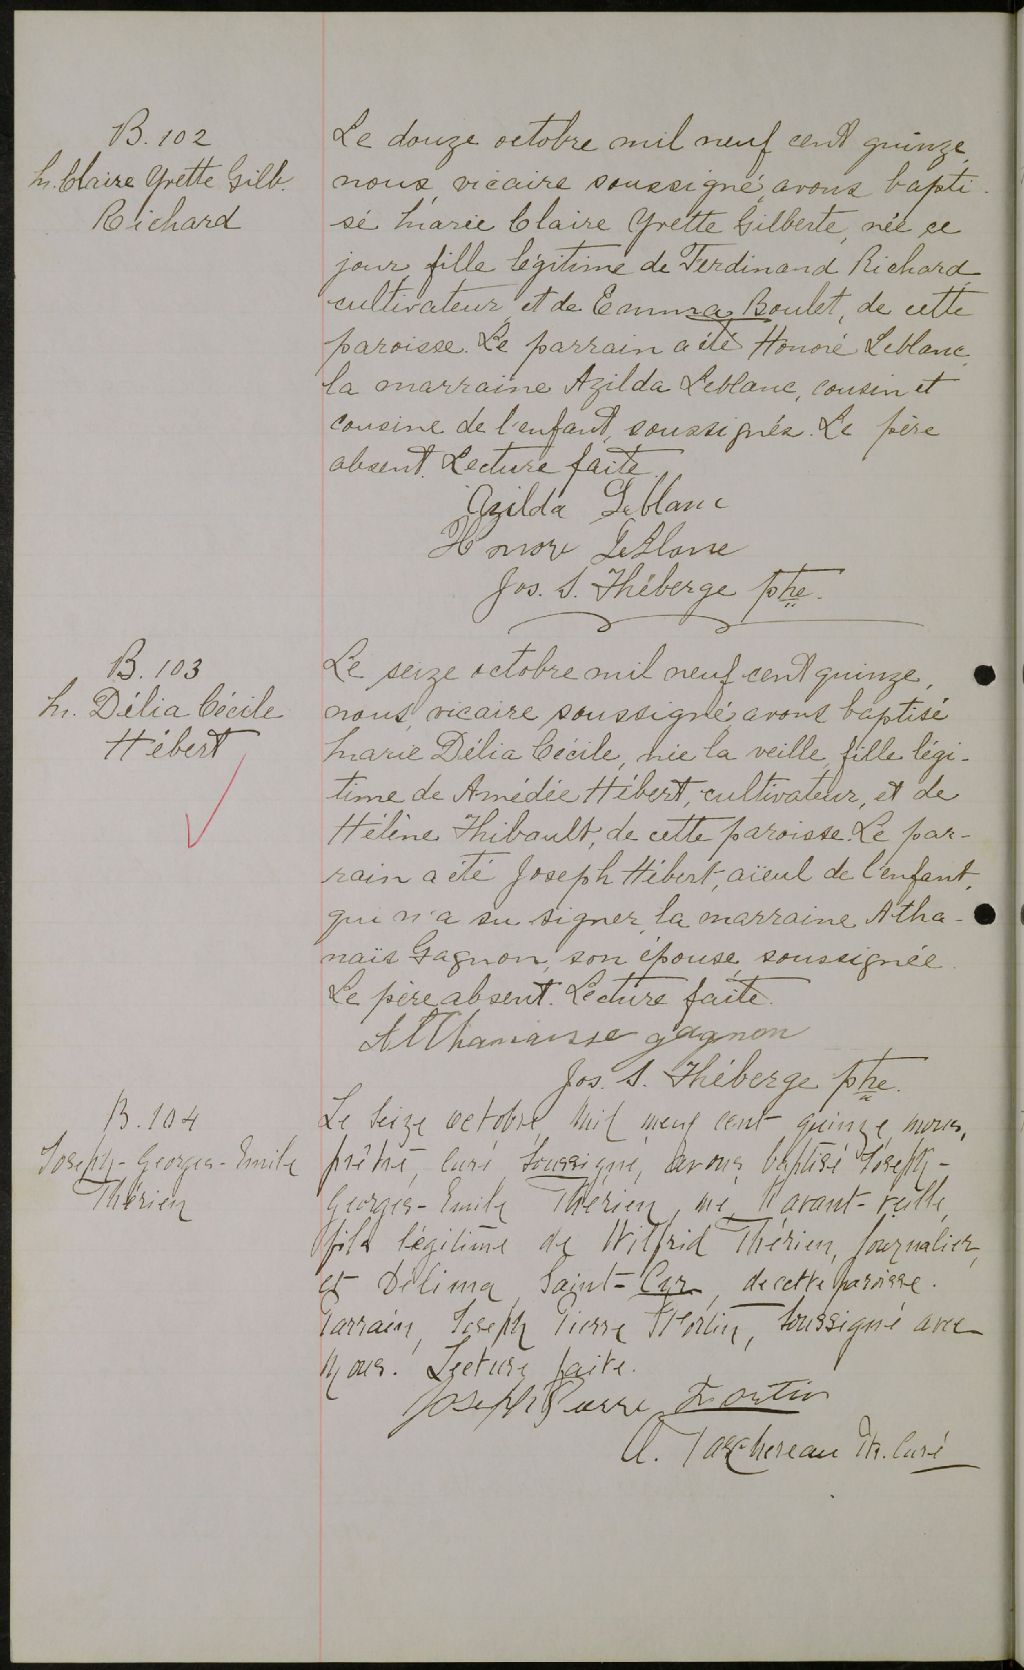 B. 102
M. Claire Yvette Gilb.
Richard
Le douze octobre mil neuf cent quinze,
nous, vicaire soussigné, avons bapti-
sé Marie Claire Yvette Gilberte, née ce
jour, fille légitime de Ferdinand Richard,
cultivateur, et de Emma Boulet, de cette
paroisse. Le parrain a été Honoré Leblanc,
la marraine Azilda Leblanc, cousin et
cousine de l'enfant, soussignés. Le père
absent. Lecture faite.
Azilda Leblanc
Honore LeBlanc
Jos. S. Théberge ptre.
B. 103
M. Délia Cécile
Hébert
Le seize octobre mil neuf cent quinze,
nous, vicaire soussigné, avons baptisé
Marie Délia Cécile, née la veille, fille légi-
time de Amédée Hébert, cultivateur, et de
Hélène Thibault, de cette paroisse. Le par-
rain a été Joseph Hébert, aïeul de l'enfant,
qui n'a su signer, la marraine Atha-
naïs Gagnon, son épouse, soussignée.
Le père absent. Lecture faite.
Athanaisse gagnon
Jos. S. Théberge ptre.
B. 104
Joseph-Georges-Emile
Thérien
Le seize octobre, mil neuf cent quinze, nous,
prêtre, curé soussigné, avons baptisé Joseph-
Georges-Emile Thérien, né l'avant-veille,
fils légitime de Wilfrid Thérien, journalier,
et Délima Saint-Cyr, de cette paroisse.
Parrain, Joseph Pierre Fortin, soussigné avec
nous. Lecture faite.
Joseph Pierre Fortin
A. Taschereau Ptr. Curé